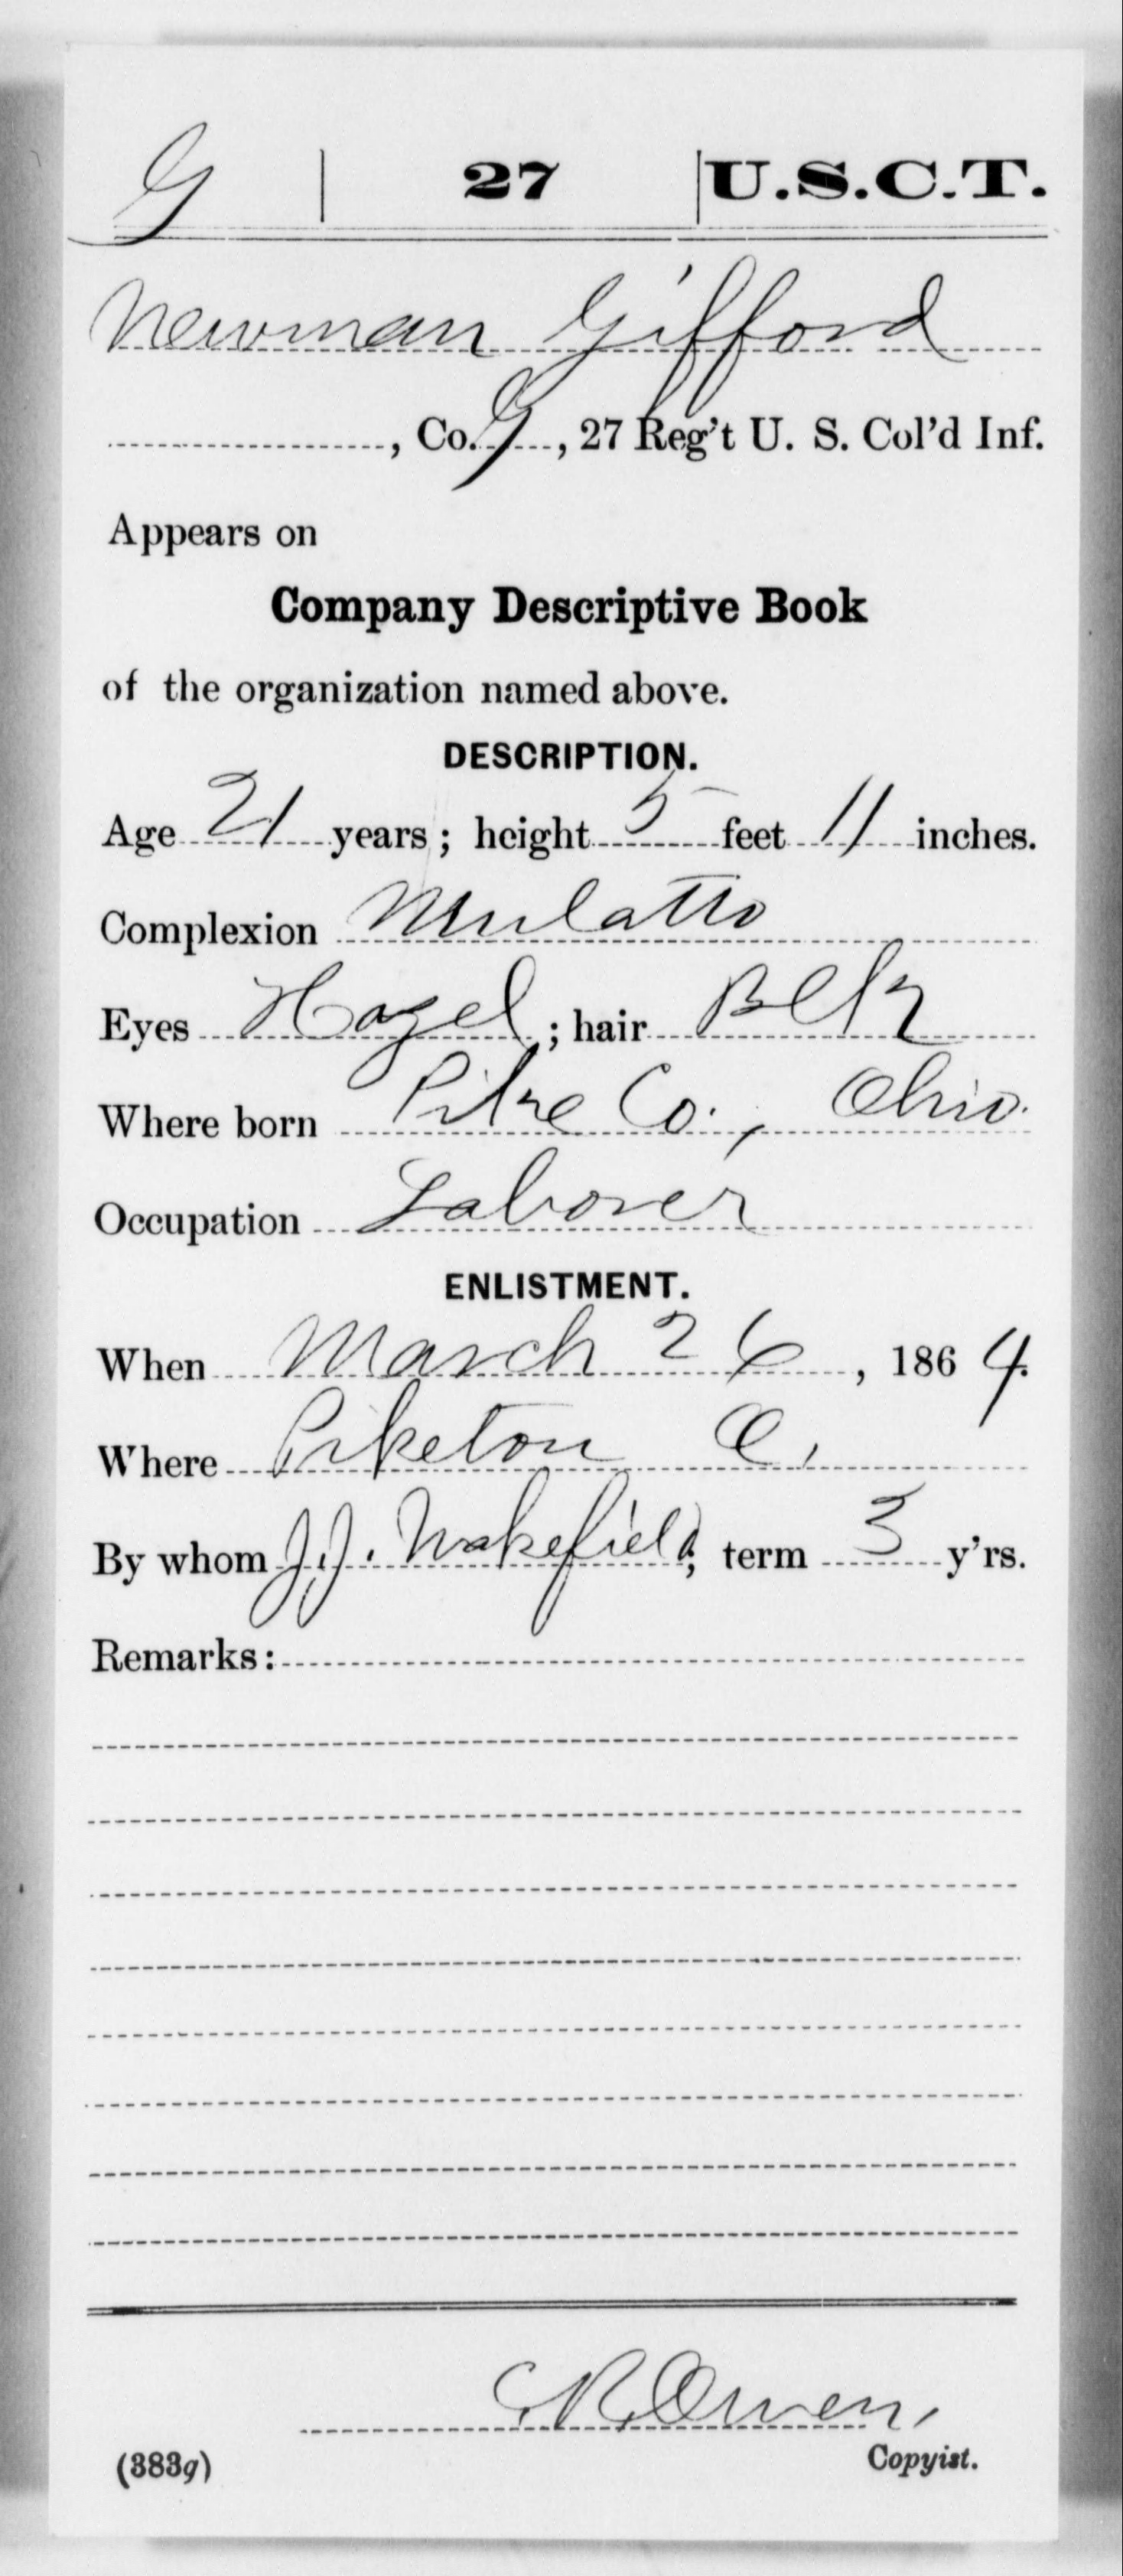 G | 27 | U.S.C.T.
Newman Gifford
, Co. G, 27 Reg't U. S. Col'd Inf.
Appears on
Company Descriptive Book
of the organization named above.
DESCRIPTION.
Age 21 years; height 5 feet 11 inches.
Complexion Mulatto
Eyes Hazel; hair Blk
Where born Pike Co., Ohio.
Occupation Laborer
ENLISTMENT.
When March 26, 1864.
Where Piketon O.
By whom J.J. Wakefield; term 3 y'rs.
Remarks:
C.R. Owen,
(383g) Copyist.